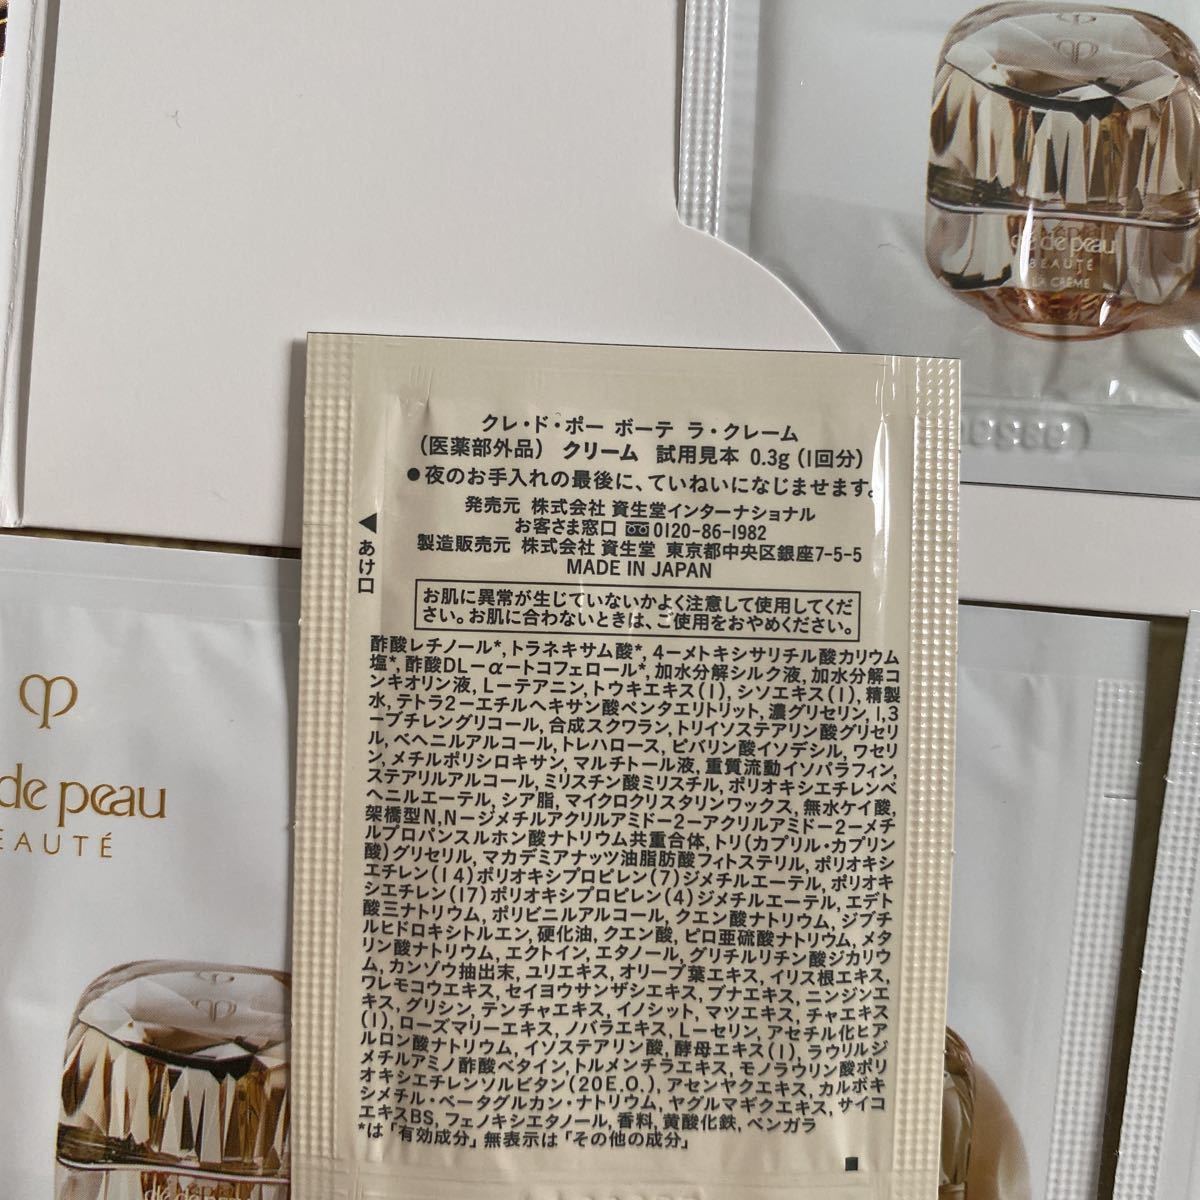 clé de peau
BEAUTÉ
LA CRÈME
クレ・ド・ポー ボーテ ラ・クレーム
(医薬部外品) クリーム 試用見本 0.3g (1回分)
●夜のお手入れの最後に、ていねいになじませます。
発売元 株式会社 資生堂インターナショナル
お客さま窓口 0120-86-1982
製造販売元 株式会社 資生堂 東京都中央区銀座7-5-5
MADE IN JAPAN
◀あけ口
お肌に異常が生じていないかよく注意して使用してくだ
さい。お肌に合わないときは、ご使用をおやめください。
酢酸レチノール*, トラネキサム酸*, 4-メトキシサリチル酸カリウム
塩*, 酢酸DL-α-トコフェロール*, 加水分解シルク液, 加水分解コ
ンキオリン液, L-テアニン, トウキエキス(1), シソエキス(1), 精製
水, テトラ2-エチルヘキサン酸ペンタエリトリット, 濃グリセリン, 1,3
-ブチレングリコール, 合成スクワラン, トリイソステアリン酸グリセリ
ル, ベヘニルアルコール, トレハロース, ピバリン酸イソデシル, ワセリ
ン, メチルポリシロキサン, マルチトール液, 重質流動イソパラフィン,
ステアリルアルコール, ミリスチン酸ミリスチル, ポリオキシエチレンベ
ヘニルエーテル, シア脂, マイクロクリスタリンワックス, 無水ケイ酸,
架橋型N,N-ジメチルアクリルアミド-2-アクリルアミド-2-メチ
ルプロパンスルホン酸ナトリウム共重合体, トリ(カプリル・カプリン
酸)グリセリル, マカデミアナッツ油脂肪酸フィトステリル, ポリオキシ
エチレン(14)ポリオキシプロピレン(7)ジメチルエーテル, ポリオキ
シエチレン(17)ポリオキシプロピレン(4)ジメチルエーテル, エデト
酸三ナトリウム, ポリビニルアルコール, クエン酸ナトリウム, ジブチ
ルヒドロキシトルエン, 硬化油, クエン酸, ピロ亜硫酸ナトリウム, メタ
リン酸ナトリウム, エクトイン, エタノール, グリチルリチン酸ジカリウ
ム, カンゾウ抽出末, ユリエキス, オリーブ葉エキス, イリス根エキス,
ワレモコウエキス, セイヨウサンザシエキス, ブナエキス, ニンジンエ
キス, グリシン, テンチャエキス, イノシット, マツエキス, チャエキス
(1), ローズマリーエキス, ノバラエキス, L-セリン, アセチル化ヒア
ルロン酸ナトリウム, イソステアリン酸, 酵母エキス(1), ラウリルジ
メチルアミノ酢酸ベタイン, トルメンチラエキス, モノラウリン酸ポリ
オキシエチレンソルビタン(20E.O.), アセンヤクエキス, カルボキ
シメチル・ベータグルカン・ナトリウム, ヤグルマギクエキス, サイコ
エキスBS, フェノキシエタノール, 香料, 黄酸化鉄, ベンガラ
*は「有効成分」無表示は「その他の成分」
de peau
EAUTÉ